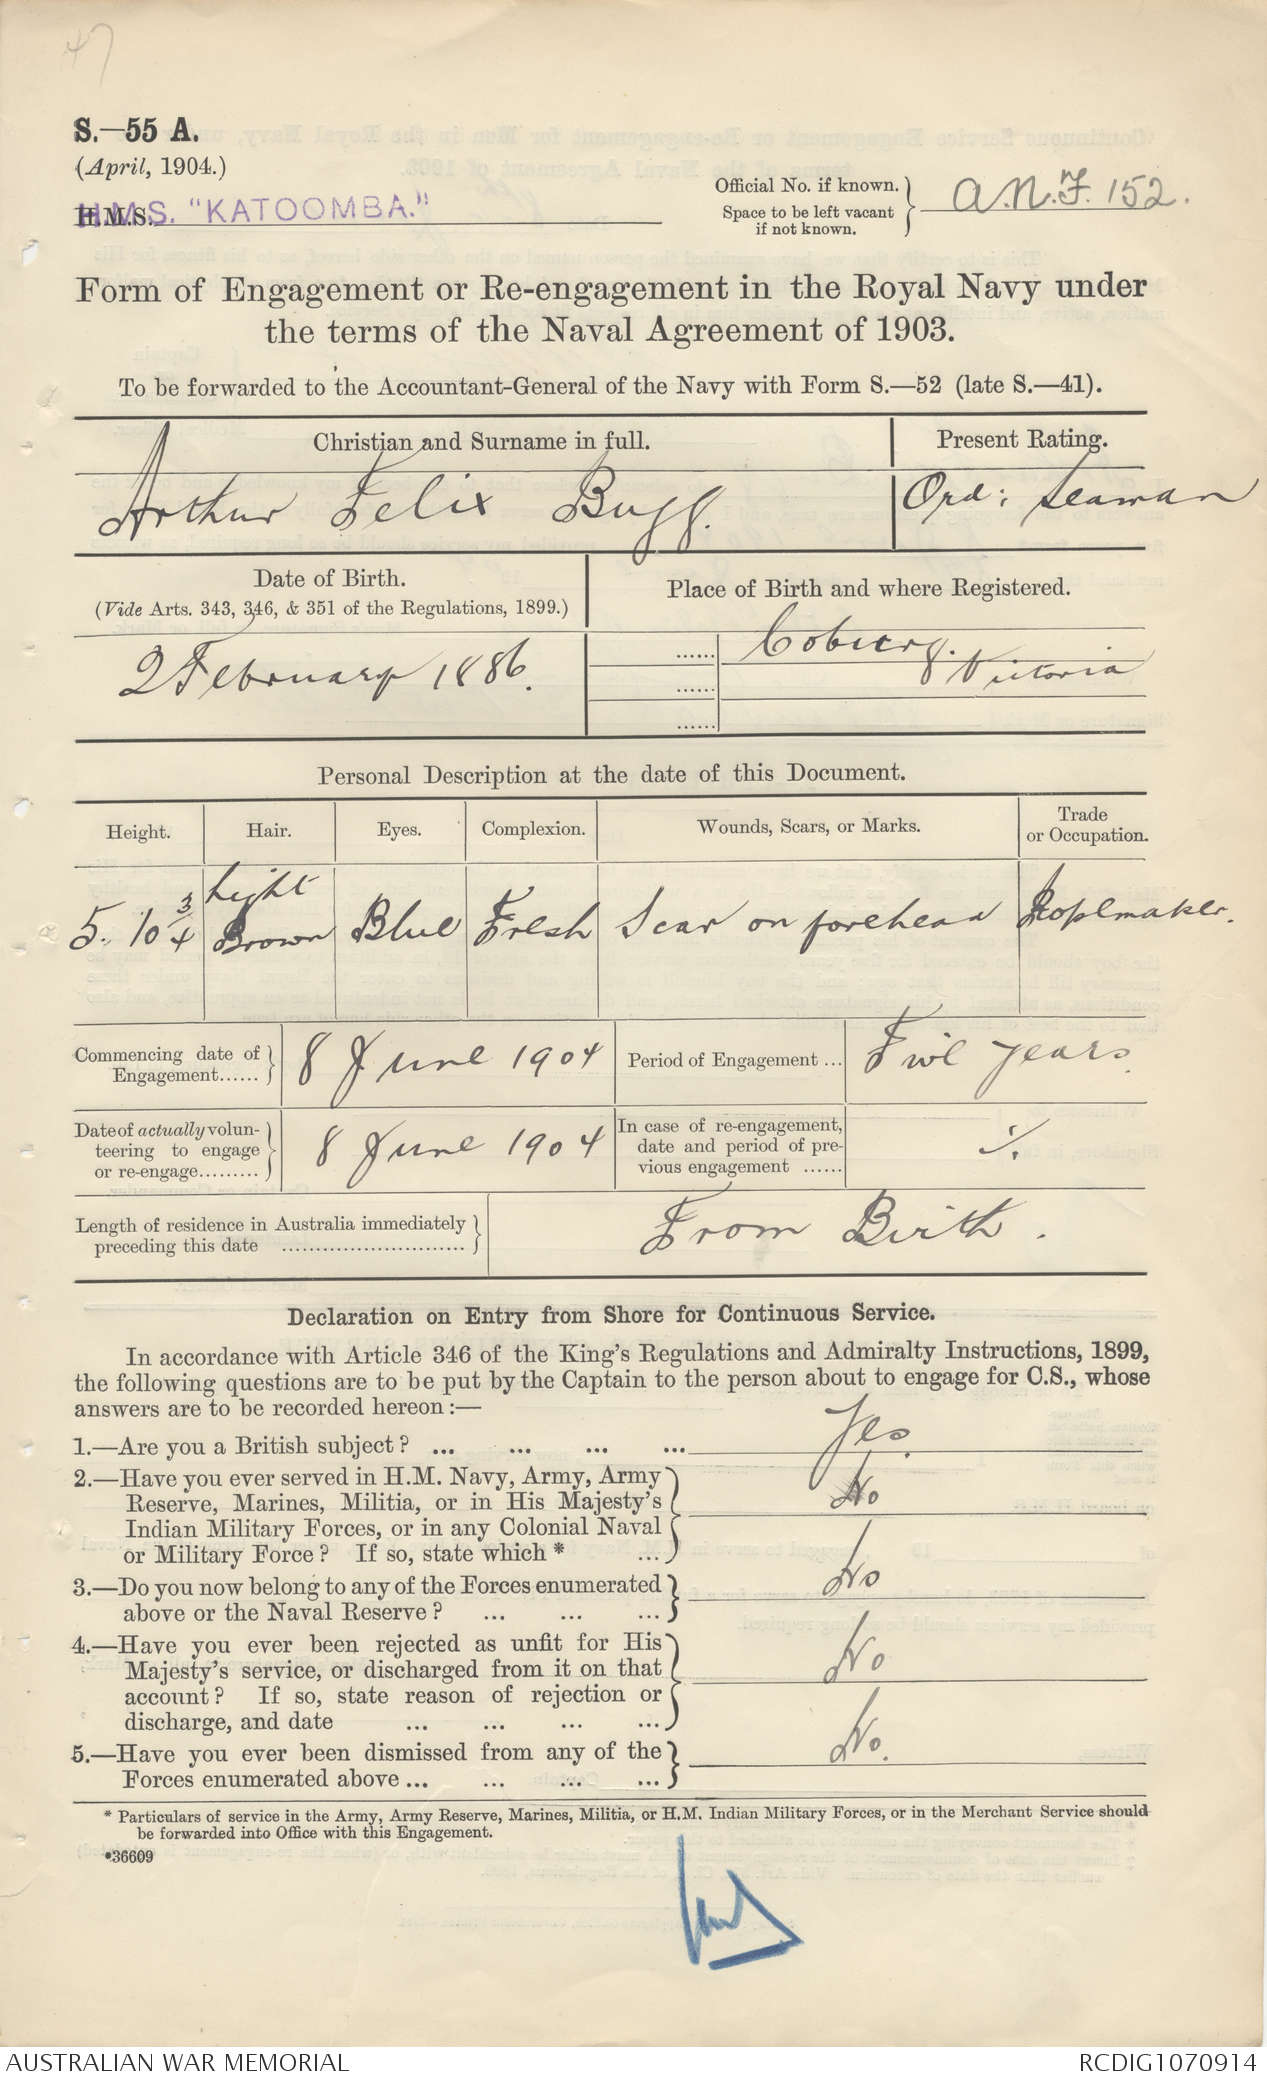 47
S.—55 A.
(April, 1904.)
H.M.S. "KATOOMBA."
H.M.S.
Official No. if known.
Space to be left vacant
if not known.
A.N.F. 152.
Form of Engagement or Re-engagement in the Royal Navy under
the terms of the Naval Agreement of 1903.
To be forwarded to the Accountant-General of the Navy with Form S.—52 (late S.—41).
Christian and Surname in full.
Present Rating.
Arthur Felix Bugg.
Ord: Seaman
Date of Birth.
(Vide Arts. 343, 346, & 351 of the Regulations, 1899.)
Place of Birth and where Registered.
2 February 1886.
...... Coburg.
...... Victoria
......
Personal Description at the date of this Document.
Height.
Hair.
Eyes.
Complexion.
Wounds, Scars, or Marks.
Trade
or Occupation.
5. 10 3/4
Light
Brown
Blue
Fresh
Scar on forehead
Ropemaker.
Commencing date of
Engagement......
8 June 1904
Period of Engagement ...
Five years.
Date of actually volun-
teering to engage
or re-engage.........
8 June 1904
In case of re-engagement,
date and period of pre-
vious engagement ......
./.
Length of residence in Australia immediately
preceding this date ...........................
From Birth.
Declaration on Entry from Shore for Continuous Service.
In accordance with Article 346 of the King's Regulations and Admiralty Instructions, 1899,
the following questions are to be put by the Captain to the person about to engage for C.S., whose
answers are to be recorded hereon:—
1.—Are you a British subject? ... ... ... ... Yes.
2.—Have you ever served in H.M. Navy, Army, Army
Reserve, Marines, Militia, or in His Majesty's
Indian Military Forces, or in any Colonial Naval
or Military Force? If so, state which * ...
No
3.—Do you now belong to any of the Forces enumerated
above or the Naval Reserve? ... ... ...
No
4.—Have you ever been rejected as unfit for His
Majesty's service, or discharged from it on that
account? If so, state reason of rejection or
discharge, and date ... ... ... ...
No
5.—Have you ever been dismissed from any of the
Forces enumerated above ... ... ... ...
No.
* Particulars of service in the Army, Army Reserve, Marines, Militia, or H.M. Indian Military Forces, or in the Merchant Service should
be forwarded into Office with this Engagement.
*36609
AUSTRALIAN WAR MEMORIAL
RCDIG1070914